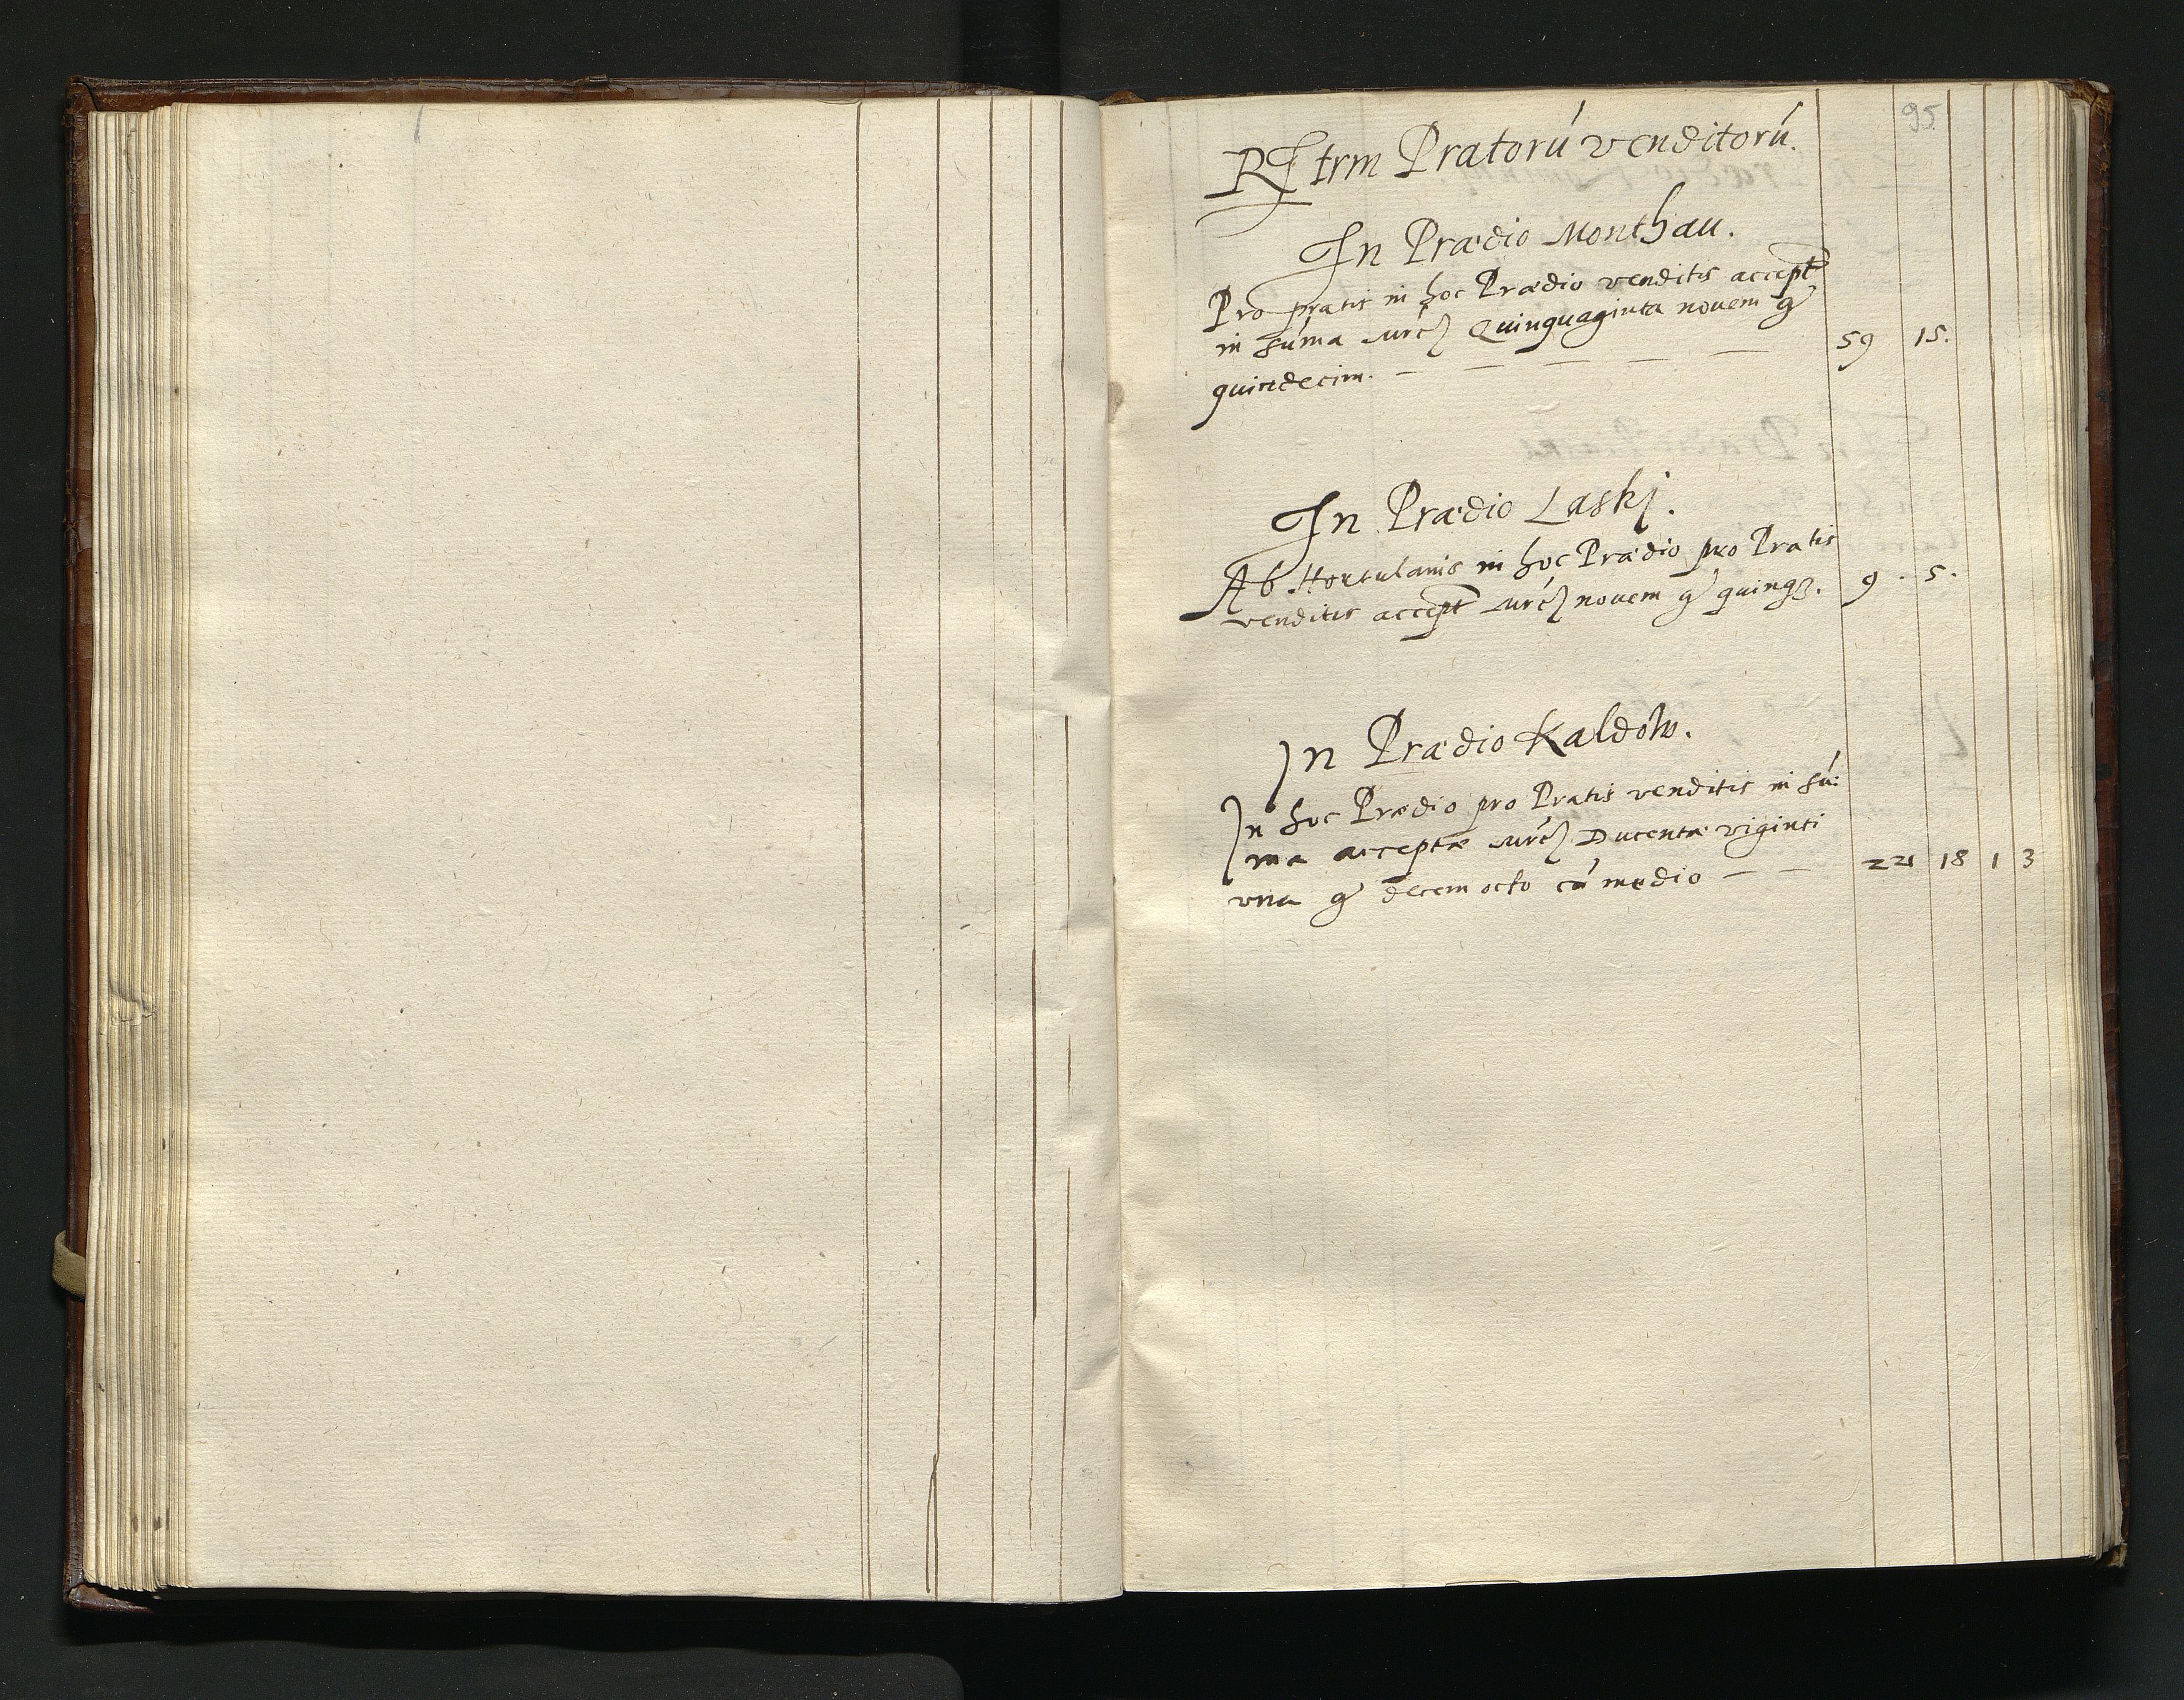 95.
Rstrm Pratorú venditorú.
In Prædio Monthau.
Pro pratis in hoc Prædio venditis accept
in súma Mrc Quinquaginta novem g 59 15.
quindecim. — — — — —
In Prædio Laskj.
Ab Hortulanis in hoc Prædio pro Pratis
venditis accept Mrc novem g quinqȝ. 9. 5.
In Prædio Kaldow.
In hoc Prædio pro Pratis venditis in sú:
ma acceptæ Mrc Ducentæ viginti
vna g decem octo cú medio — — 221 18 1 3